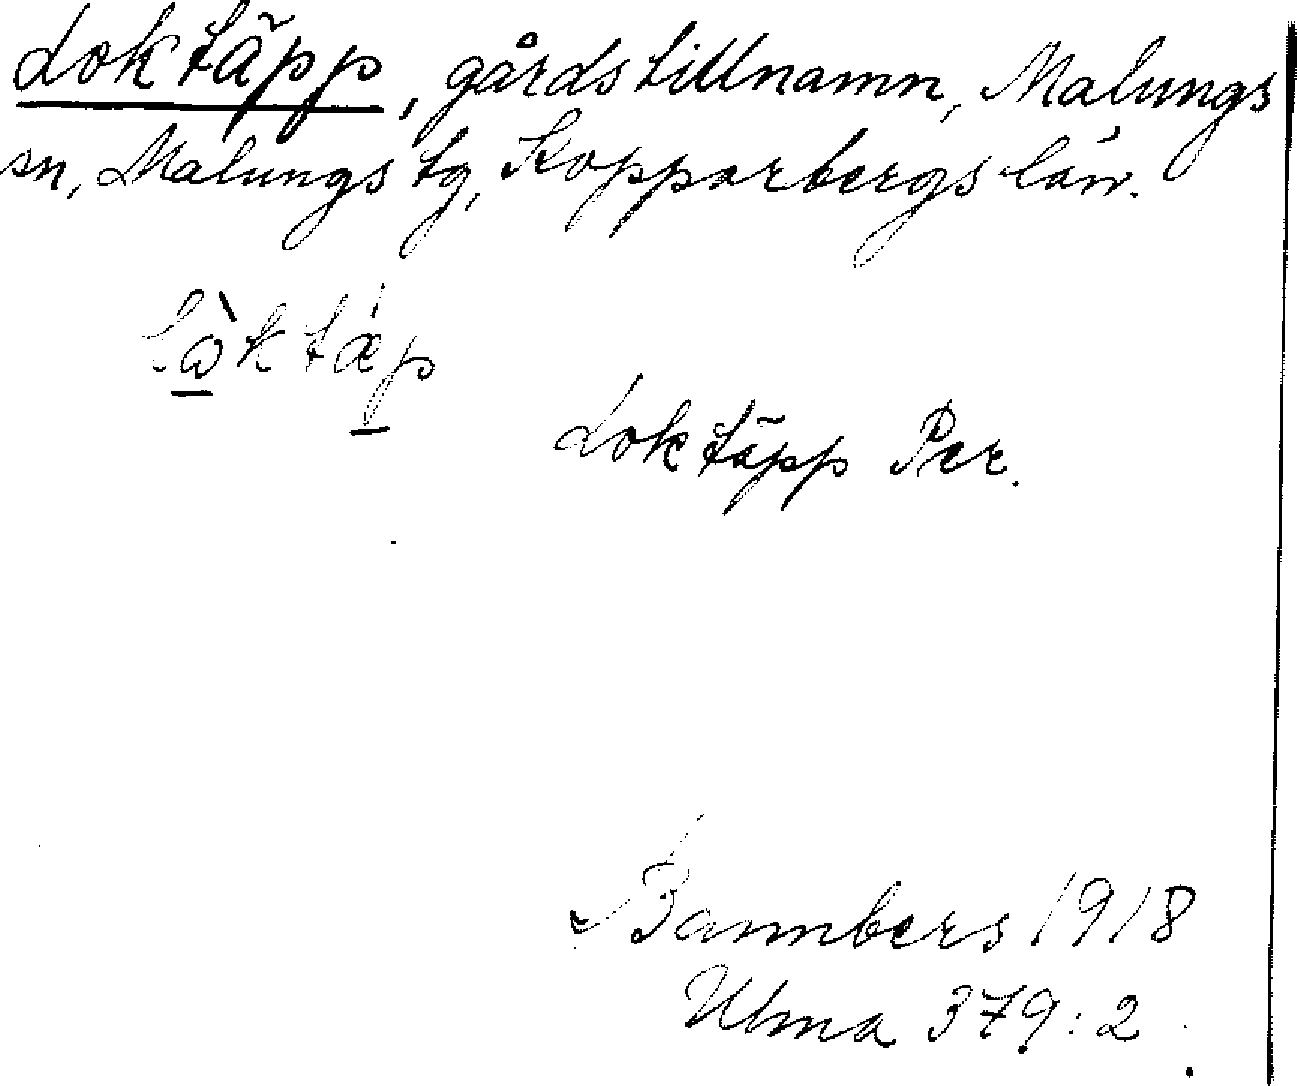 Loktäpp, gårdstillnamn, Malungs
sn, Malungs tg, Kopparbergs län.
lὼktæ̀p
Loktäpp Per.
Bannbers 1918
Ulma 379:2